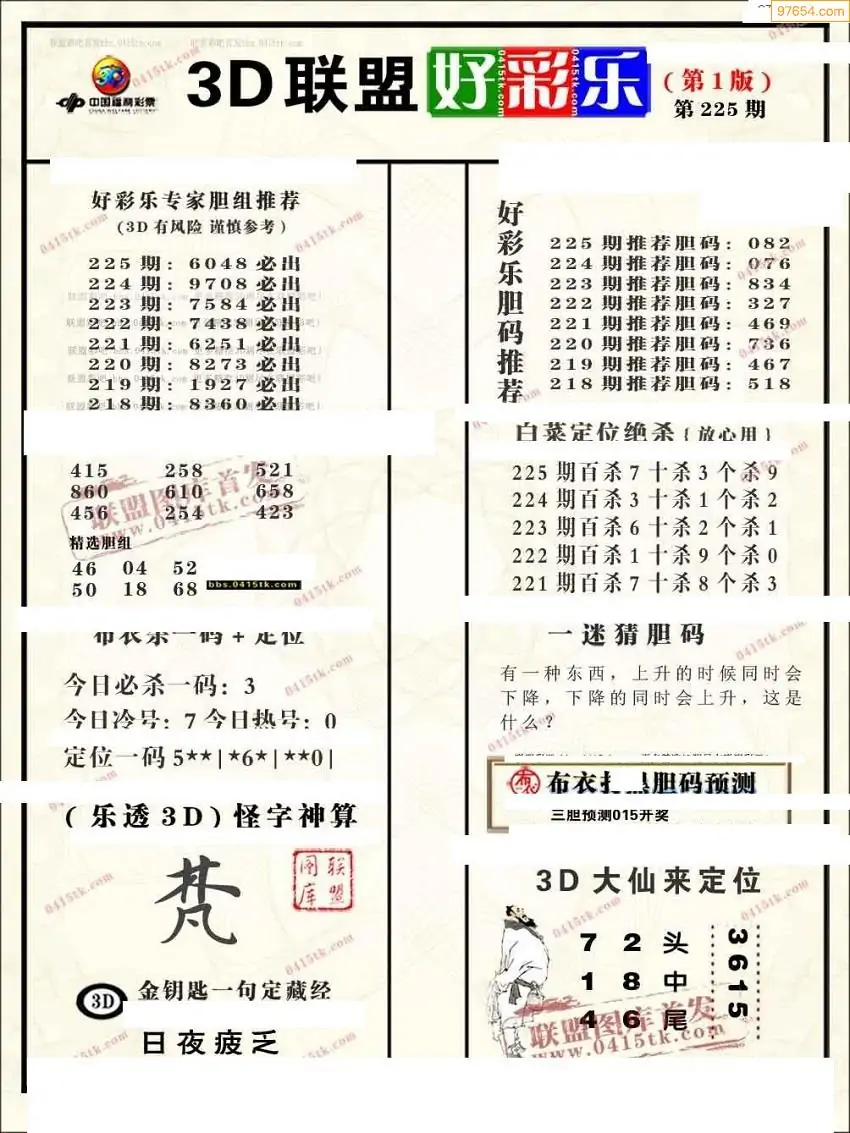 97654.com
3D联盟好彩乐
(第1版)
第225期
中国福利彩票
CHINA WELFARE LOTTERY
好彩乐专家胆组推荐
(3D有风险 谨慎参考)
225期: 6048必出
224期: 9708必出
223期: 7584必出
222期: 7438必出
221期: 6251必出
220期: 8273必出
219期: 1927必出
218期: 8360必出
415 258 521
860 610 658
456 254 423
精选胆组
46 04 52
50 18 68
bbs.0415tk.com
布衣杀一码+定位
今日必杀一码: 3
今日冷号: 7 今日热号: 0
定位一码5**|*6*|**0|
(乐透3D)怪字神算
梵
联盟图库
3D
金钥匙一句定藏经
日夜疲乏
好彩乐胆码推荐
225期推荐胆码: 082
224期推荐胆码: 076
223期推荐胆码: 834
222期推荐胆码: 327
221期推荐胆码: 469
220期推荐胆码: 736
219期推荐胆码: 467
218期推荐胆码: 518
白菜定位绝杀{放心用}
225期百杀7十杀3个杀9
224期百杀3十杀1个杀2
223期百杀6十杀2个杀1
222期百杀1十杀9个杀0
221期百杀7十杀8个杀3
一迷猜胆码
有一种东西，上升的时候同时会
下降，下降的同时会上升，这是
什么？
布衣 胆码预测
三胆预测015开奖
3D大仙来定位
7 2 头
1 8 中
4 6 尾
3615
联盟图库首发
www.0415tk.com